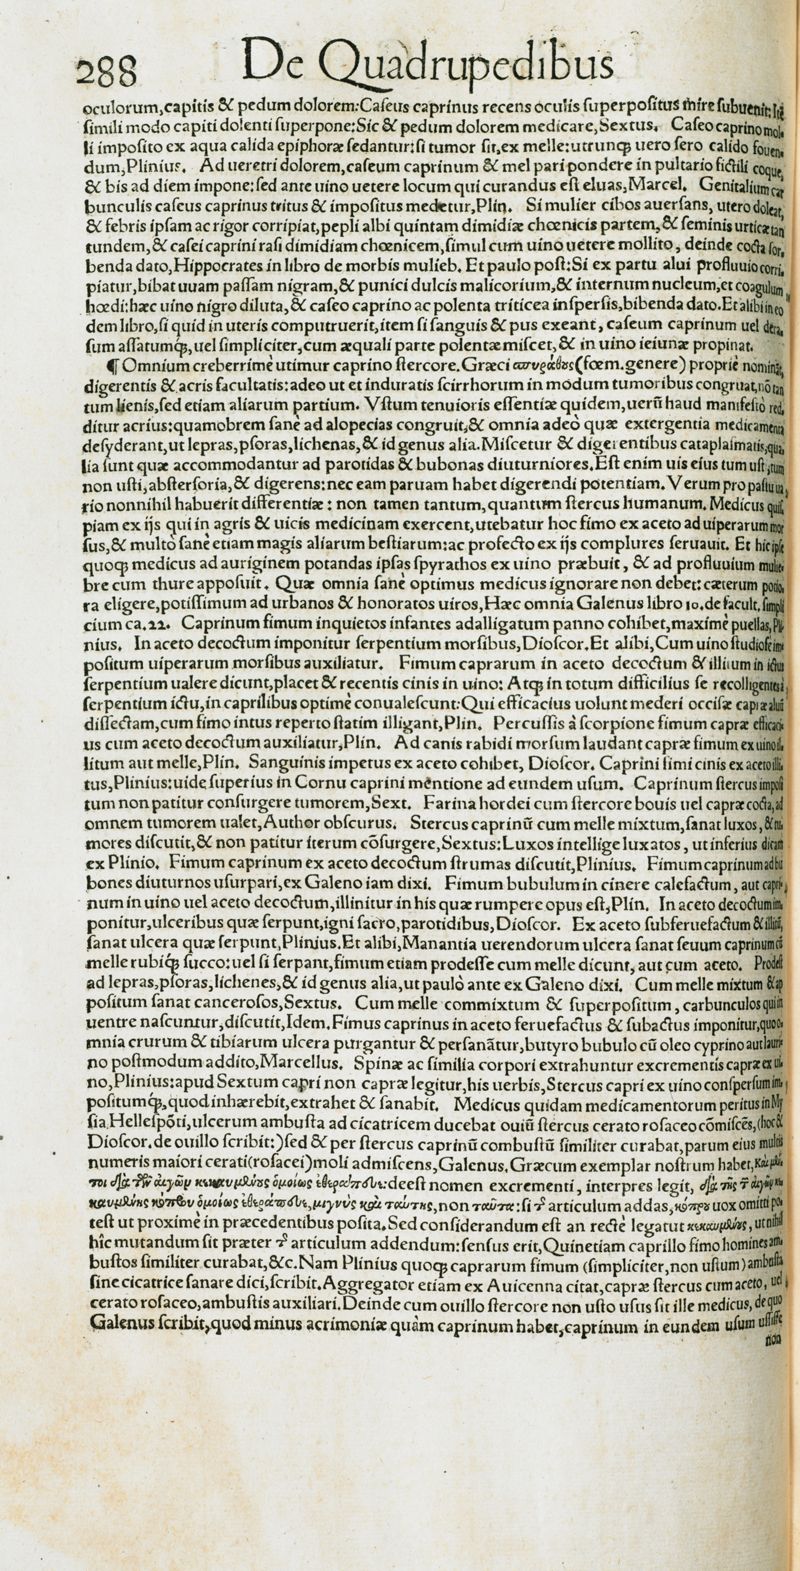 288 De Quadrupedibus
oculorum,capitis & pedum dolorem:Caſeus caprinus recens oculis ſuperpoſitus mire ſubuenit:
ſimili modo capiti dolenti ſuperpone:Sic & pedum dolorem medicare,Sextus. Caſeo caprino mol
li impoſito ex aqua calida epiphoræ ſedantur:ſi tumor ſit,ex melle:utrunq; uero ſero calido fouen
dum,Plinius. Ad ueretri dolorem,caſeum caprinum & mel pari pondere in pultario fictili coque,
& bis ad diem impone:ſed ante uino uetere locum qui curandus eſt eluas,Marcel. Genitalium car
bunculis caſeus caprinus tritus & impoſitus medetur,Plin. Si mulier cibos auerſans, utero doleat,
& febris ipſam ac rigor corripiat,pepli albi quintam dimidiæ chœnicis partem,& ſeminis urticæ tan
tundem,& caſei caprini raſi dimidiam chœnicem,ſimul cum uino uetere mollito, deinde cocta ſor,
benda dato,Hippocrates in libro de morbis mulieb. Et paulo poſt:Si ex partu alui profluuio corri,
piatur,bibat uuam paſſam nigram,& punici dulcis malicorium,& internum nucleum,et coagulum
hœdi:hæc uino nigro diluta,& caſeo caprino ac polenta triticea inſperſis,bibenda dato.Et alibi in eo
dem libro,ſi quid in uteris computruerit,item ſi ſanguis & pus exeant, caſeum caprinum uel
ſum aſſatumq;,uel ſimpliciter,cum æquali parte polentæ miſcet,& in uino ieiunæ propinat.
¶ Omnium creberrimè utimur caprino ſtercore.Græci σπυράθους(fœm.genere) propriè nominãt,
digerentis & acris facultatis:adeo ut et induratis ſcirrhorum in modum tumoribus congruat,nõ tan
tum lienis,ſed etiam aliarum partium. Vſtum tenuioris eſſentiæ quidem,uerũ haud manifeſtò red,
ditur acrius:quamobrem ſanè ad alopecias congruit,& omnia adeò quæ extergentia medicamenta
deſyderant,ut lepras,pſoras,lichenas,& id genus alia.Miſcetur & digerentibus cataplaſmatis,qua
lia ſunt quæ accommodantur ad parotidas & bubonas diuturniores.Eſt enim uis eius tum uſti,tum
non uſti,abſterſoria,& digerens:nec eam paruam habet digerendi potentiam.Verum pro paſtu ua
rio nonnihil habuerit differentiæ: non tamen tantum,quantum ſtercus humanum. Medicus quiſ,
piam ex ijs qui in agris & uicis medicinam exercent,utebatur hoc fimo ex aceto ad uiperarum mor
ſus,& multò ſanè etiam magis aliarum beſtiarum:ac profecto ex ijs complures ſeruauit. Et hic ipſe
quoq; medicus ad auriginem potandas ipſas ſpyrathos ex uino præbuit, & ad profluuium mulie,
bre cum thure appoſuit. Quæ omnia ſanè optimus medicus ignorare non debet: cæterum potio,
ra eligere,potiſſimum ad urbanos & honoratos uiros,Hæc omnia Galenus libro 10.de facult.ſimpli
cium ca.22. Caprinum fimum inquietos infantes adalligatum panno cohibet,maximè puellas,Pli
nius. In aceto decoctum imponitur ſerpentium morſibus,Dioſcor.Et alibi,Cum uino ſtudioſe im
poſitum uiperarum morſibus auxiliatur. Fimum caprarum in aceto decoctum & illitum in ictus
ſerpentium ualere dicunt,placet & recentis cinis in uino: Atq; in totum difficilius ſe recolligentes à
ſerpentium ictu,in caprilibus optimè conualeſcunt:Qui efficacius uolunt mederi occiſæ capræ aluũ
diſſectam,cum fimo intus reperto ſtatim illigant,Plin. Percuſſis à ſcorpione fimum capræ efficaci,
us cum aceto decoctum auxiliatur,Plin. Ad canis rabidi morſum laudant capræ fimum ex uino il,
litum aut melle,Plin. Sanguinis impetus ex aceto cohibet, Dioſcor. Caprini fimi cinis ex aceto illi,
tus,Plinius:uide ſuperius in Cornu caprini mentione ad eundem uſum. Caprinum ſtercus impoſi
tum non patitur conſurgere tumorem,Sext. Farina hordei cum ſtercore bouis uel capræ cocta,ad
omnem tumorem ualet,Author obſcurus. Stercus caprinũ cum melle mixtum,ſanat luxos, & tu,
mores diſcutit,& non patitur iterum cõſurgere,Sextus:Luxos intellige luxatos, ut inferius dicam
ex Plinio. Fimum caprinum ex aceto decoctum ſtrumas diſcutit,Plinius. Fimum caprinum ad bu
bones diuturnos uſurpari,ex Galeno iam dixi. Fimum bubulum in cinere calefactum, aut capri,
num in uino uel aceto decoctum,illinitur in his quæ rumpere opus eſt,Plin. In aceto decoctum im,
ponitur,ulceribus quæ ſerpunt,igni ſacro,parotidibus,Dioſcor. Ex aceto ſubferuefactum & illitũ,
ſanat ulcera quæ ſerpunt,Plinius.Et alibi,Manantia uerendorum ulcera ſanat ſeuum caprinum cũ
melle rubiq́; ſucco:uel ſi ſerpant,fimum etiam prodeſſe cum melle dicunt, aut cum aceto. Prodeſt
ad lepras,pſoras,lichenes,& id genus alia,ut paulò ante ex Galeno dixi. Cum melle mixtum & ap
poſitum ſanat canceroſos,Sextus. Cum melle commixtum & ſuperpoſitum, carbunculos qui in
uentre naſcuntur,diſcutit,Idem.Fimus caprinus in aceto feruefactus & ſubactus imponitur,quo o,
mnia crurum & tibiarum ulcera purgantur & perſanãtur,butyro bubulo cũ oleo cyprino aut lauri
no poſtmodum addito,Marcellus. Spinæ ac ſimilia corpori extrahuntur excrementis capræ ex ui,
no,Plinius:apud Sextum capri non capræ legitur,his uerbis,Stercus capri ex uino conſperſum im,
poſitumq;,quod inhærebit,extrahet & ſanabit. Medicus quidam medicamentorum peritus in My
ſia,Helleſpõti,ulcerum ambuſta ad cicatricem ducebat ouiũ ſtercus cerato roſaceo cõmiſcẽs,(hoc &
Dioſcor.de ouillo ſcribit:)ſed & per ſtercus caprinũ combuſtũ ſimiliter curabat,parum eius multis
numeris maiori cerati(roſacei)moli admiſcens,Galenus.Græcum exemplar noſtrum habet,
τοι διὰ τῶν αἰγῶν κεκαυμένης ὁμοίως ἐθεράπευε:deeſt nomen excrementi, interpres legit, διὰ τῆς τ αἰγῶν κε
καυμένης κόπρου ὁμοίως ἐθεράπευε,μιγνὺς καὶ ταύτης,non ταῦτα: ſi τ articulum addas,κόπρου uox omitti po
teſt ut proximè in præcedentibus poſita.Sed conſiderandum eſt an rectè legatur κεκαυμένης, ut nihil
hîc mutandum ſit præter τ articulum addendum:ſenſus erit,Quinetiam caprillo fimo homines am,
buſtos ſimiliter curabat,&c.Nam Plinius quoq; caprarum fimum (ſimpliciter,non uſtum)ambuſta
ſine cicatrice ſanare dici,ſcribit.Aggregator etiam ex Auicenna citat,capræ ſtercus cum aceto, uel
cerato roſaceo,ambuſtis auxiliari.Deinde cum ouillo ſtercore non uſto uſus ſit ille medicus, de quo
Galenus ſcribit,quod minus acrimoniæ quàm caprinum habet,caprinum in eundem uſum uſſiſſe
non